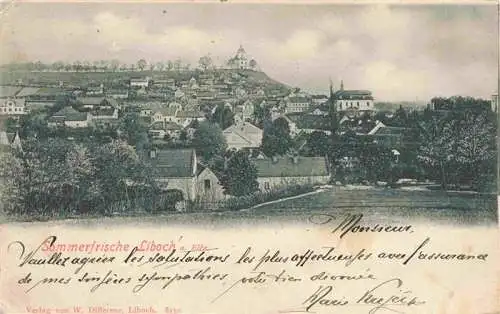 Sommerfrische Liboch a. Elbe.
Monsieur.
Veuillez agréer les salutations les plus affectueuses avec l'assurance
de mes sincères sympathies
Marie
Verlag von W. Differenz, Liboch.